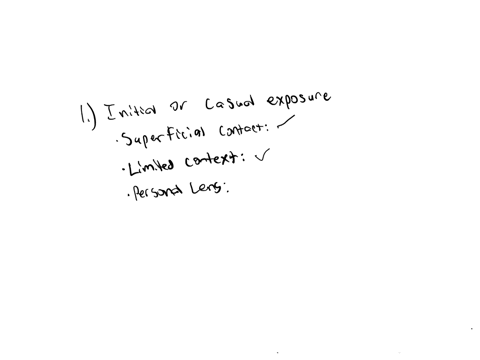 1.) Initial or Casual exposure
· Superficial Contact: ✓
· Limited context: ✓
· Personal Lens: